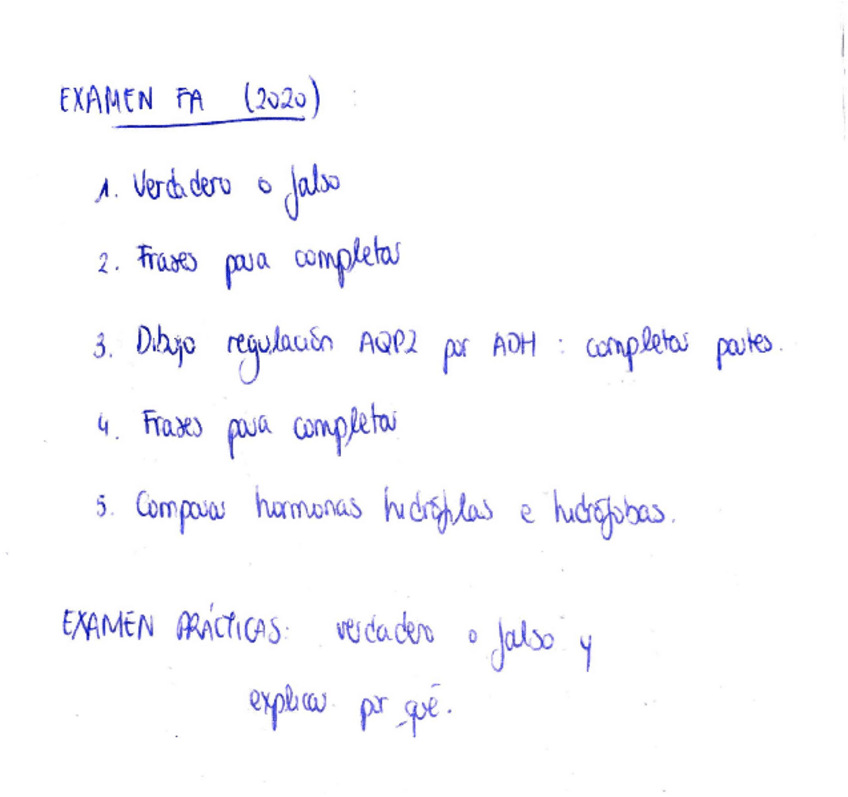 EXAMEN FA (2020):
1. Verdadero o falso
2. Frases para completar
3. Dibujo regulación AQP2 por ADH: completar partes.
4. Frases para completar
5. Comparar hormonas hidrófilas e hidrófobas.
EXAMEN PRÁCTICAS: verdadero o falso y
explicar por qué.